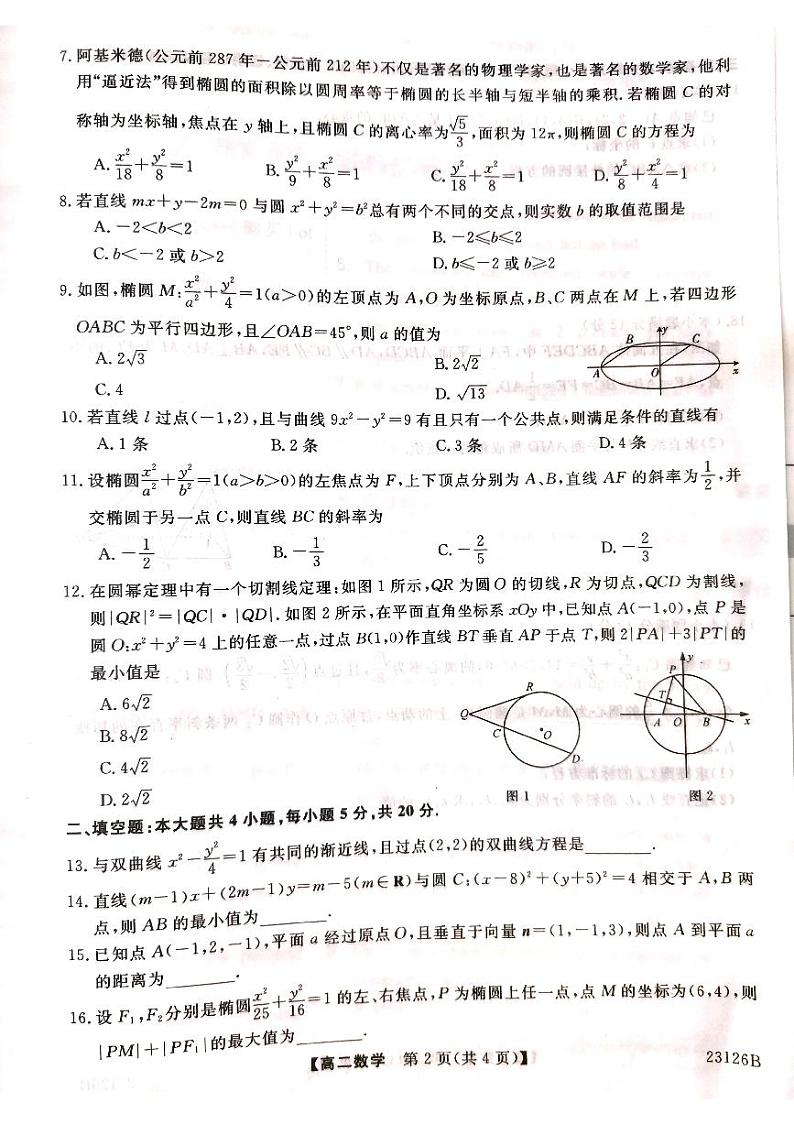 7. 阿基米德(公元前 287 年—公元前 212 年)不仅是著名的物理学家,也是著名的数学家,他利
用“逼近法”得到椭圆的面积除以圆周率等于椭圆的长半轴与短半轴的乘积. 若椭圆 C 的对
称轴为坐标轴,焦点在 y 轴上,且椭圆 C 的离心率为 √5/3,面积为 12π,则椭圆 C 的方程为
A. x²/18+y²/8=1 B. y²/9+x²/8=1 C. y²/18+x²/8=1 D. y²/8+x²/4=1
8. 若直线 mx+y-2m=0 与圆 x²+y²=b² 总有两个不同的交点,则实数 b 的取值范围是
A. -2<b<2 B. -2⩽b⩽2
C. b<-2 或 b>2 D. b⩽-2 或 b⩾2
9. 如图,椭圆 M: x²/a²+y²/4=1(a>0)的左顶点为 A,O 为坐标原点,B、C 两点在 M 上,若四边形
OABC 为平行四边形,且∠OAB=45°,则 a 的值为
A. 2√3 B. 2√2
C. 4 D. √13
y
B C
A O x
10. 若直线 l 过点(-1,2),且与曲线 9x²-y²=9 有且只有一个公共点,则满足条件的直线有
A. 1 条 B. 2 条 C. 3 条 D. 4 条
11. 设椭圆 x²/a²+y²/b²=1(a>b>0)的左焦点为 F,上下顶点分别为 A、B,直线 AF 的斜率为 1/2,并
交椭圆于另一点 C,则直线 BC 的斜率为
A. -1/2 B. -1/3 C. -2/5 D. -2/3
12. 在圆幂定理中有一个切割线定理:如图 1 所示,QR 为圆 O 的切线,R 为切点,QCD 为割线,
则|QR|²=|QC|·|QD|. 如图 2 所示,在平面直角坐标系 xOy 中,已知点 A(-1,0),点 P 是
圆 O: x²+y²=4 上的任意一点,过点 B(1,0)作直线 BT 垂直 AP 于点 T,则 2|PA|+3|PT|的
最小值是
A. 6√2
B. 8√2
C. 4√2
D. 2√2
R
Q
C
O
D
图 1
y
P
T
A O B x
图 2
二、填空题:本大题共 4 小题,每小题 5 分,共 20 分.
13. 与双曲线 x²-y²/4=1 有共同的渐近线,且过点(2,2)的双曲线方程是________.
14. 直线(m-1)x+(2m-1)y=m-5(m∈R)与圆 C:(x-8)²+(y+5)²=4 相交于 A,B 两
点,则 AB 的最小值为________.
15. 已知点 A(-1,2,-1),平面 α 经过原点 O,且垂直于向量 n=(1,-1,3),则点 A 到平面 α
的距离为________.
16. 设 F₁,F₂分别是椭圆 x²/25+y²/16=1 的左、右焦点,P 为椭圆上任一点,点 M 的坐标为(6,4),则
|PM|+|PF₁|的最大值为________.
【高二数学 第 2 页(共 4 页)】 23126B